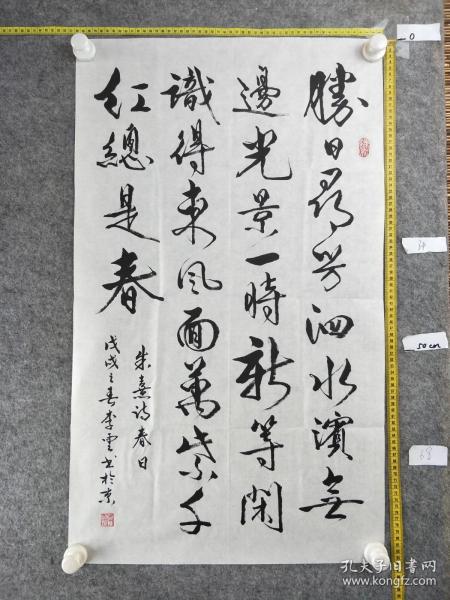 勝日尋芳泗水濱無
邊光景一時新等閑
識得東風面萬紫千
紅總是春
朱熹詩春日
戊戌之春李雲書於京
0
50cm
68
孔夫子旧书网
www.kongfz.com